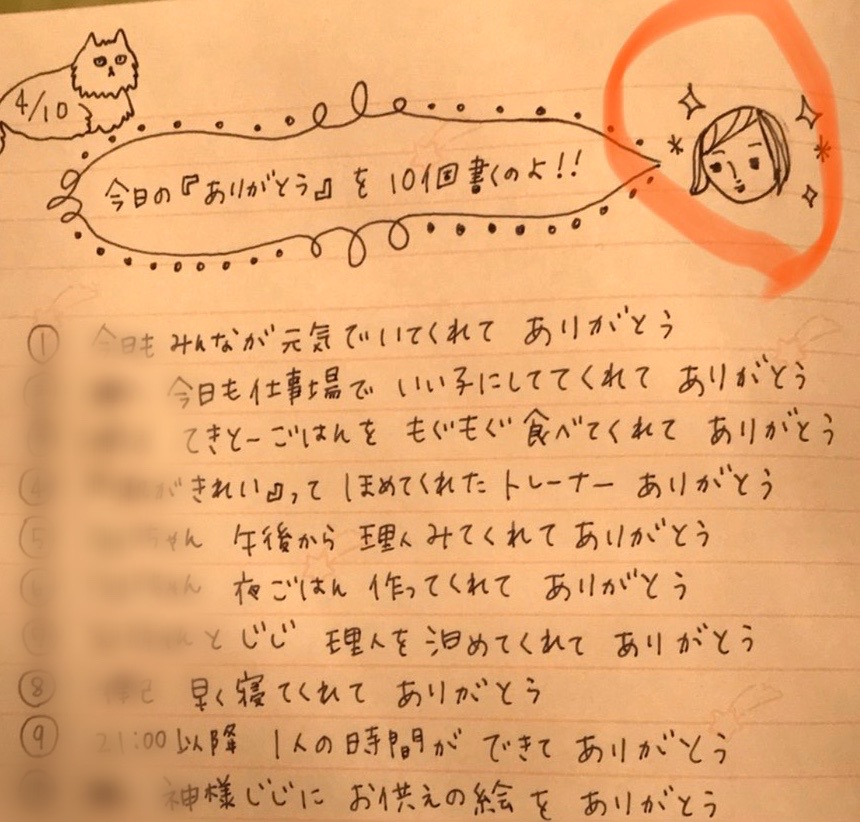 4/10
今日の『ありがとう』を 10個書くのよ!!
① 今日も みんなが元気でいてくれて ありがとう
今日も仕事場で いい子にしててくれて ありがとう
てきとーごはんを もぐもぐ食べてくれて ありがとう
④ がきれい』って ほめてくれたトレーナー ありがとう
⑤ ちゃん 午後から 理人みてくれて ありがとう
⑥ ちゃん 夜ごはん 作ってくれて ありがとう
と じじ 理人を泊めてくれて ありがとう
⑧ 早く寝てくれて ありがとう
⑨ 21:00以降 1人の時間が できて ありがとう
神様じじに お供えの絵を ありがとう